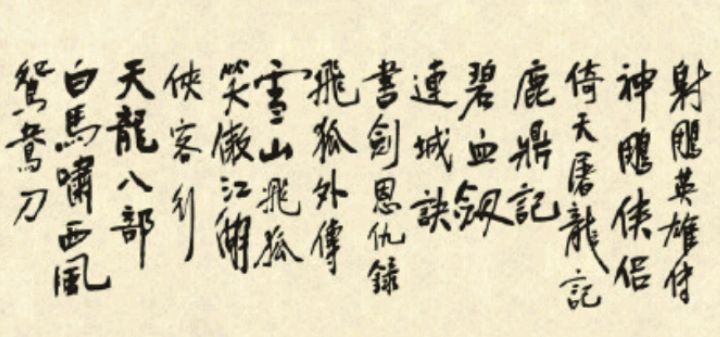 射鵰英雄傳
神鵰侠侣
倚天屠龍記
鹿鼎記
碧血劔
連城訣
書劍恩仇錄
飛狐外傳
雪山飛狐
笑傲江湖
俠客行
天龍八部
白馬嘯西風
鴛鴦刀